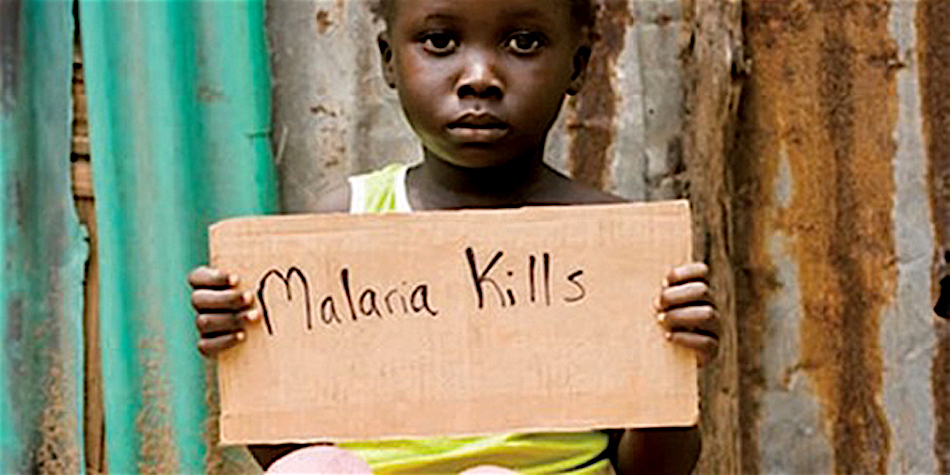 Malaria Kills